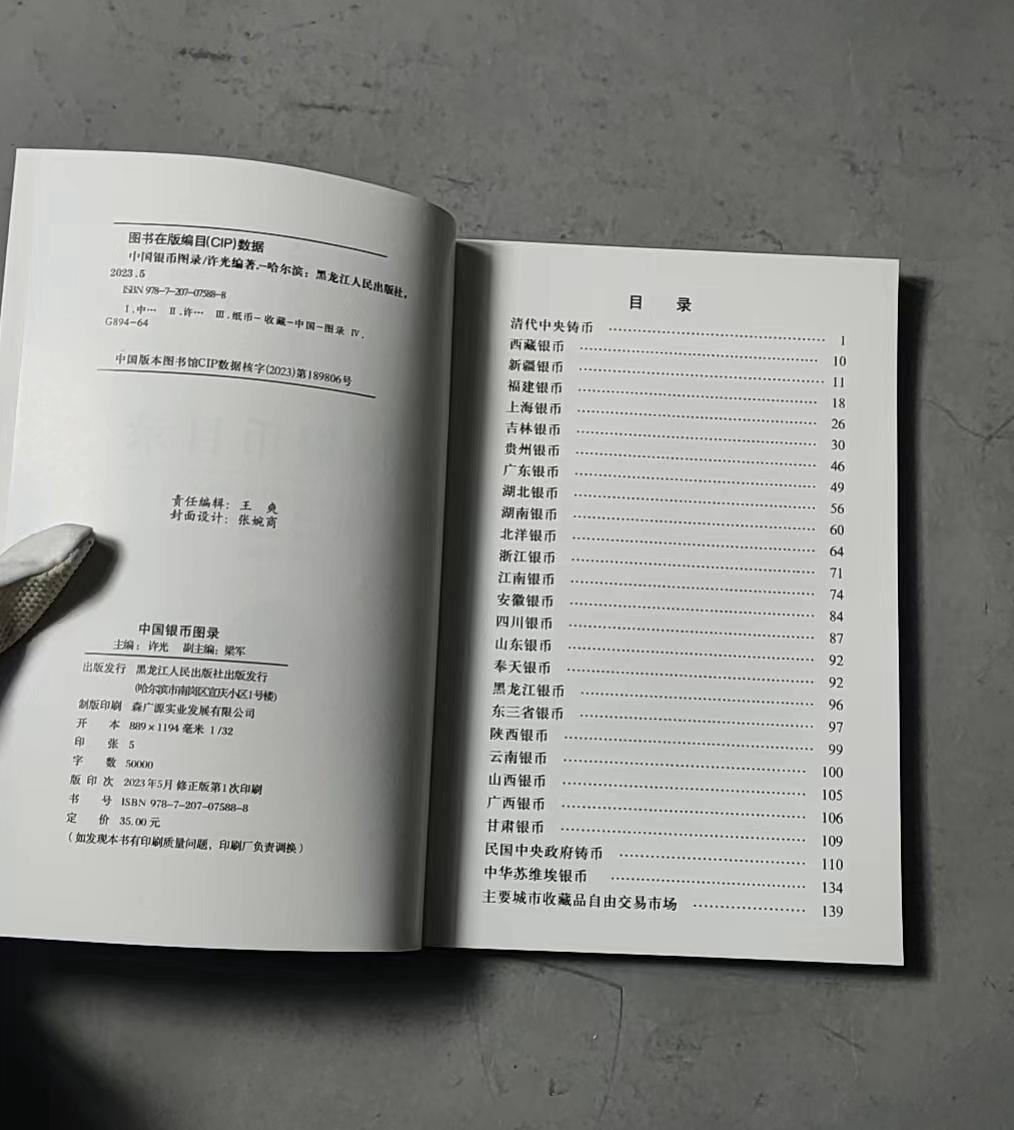 图书在版编目(CIP)数据
中国银币图录/许光编著.—哈尔滨：黑龙江人民出版社，
2023.5
ISBN 978-7-207-07588-8
Ⅰ.中… Ⅱ.许… Ⅲ.纸币－收藏－中国－图录 Ⅳ.
G894-64
中国版本图书馆CIP数据核字(2023)第189806号
责任编辑：王 爽
封面设计：张婉商
中国银币图录
主编：许光 副主编：梁军
出版发行 黑龙江人民出版社出版发行
(哈尔滨市南岗区宣庆小区1号楼)
制版印刷 森广源实业发展有限公司
开 本 889×1194 毫米 1/32
印 张 5
字 数 50000
版 印 次 2023年5月 修正版第1次印刷
书 号 ISBN 978-7-207-07588-8
定 价 35.00 元
（如发现本书有印刷质量问题，印刷厂负责调换）
目 录
清代中央铸币 …… 1
西藏银币 …… 10
新疆银币 …… 11
福建银币 …… 18
上海银币 …… 26
吉林银币 …… 30
贵州银币 …… 46
广东银币 …… 49
湖北银币 …… 56
湖南银币 …… 60
北洋银币 …… 64
浙江银币 …… 71
江南银币 …… 74
安徽银币 …… 84
四川银币 …… 87
山东银币 …… 92
奉天银币 …… 92
黑龙江银币 …… 96
东三省银币 …… 97
陕西银币 …… 99
云南银币 …… 100
山西银币 …… 105
广西银币 …… 106
甘肃银币 …… 109
民国中央政府铸币 …… 110
中华苏维埃银币 …… 134
主要城市收藏品自由交易市场 …… 139